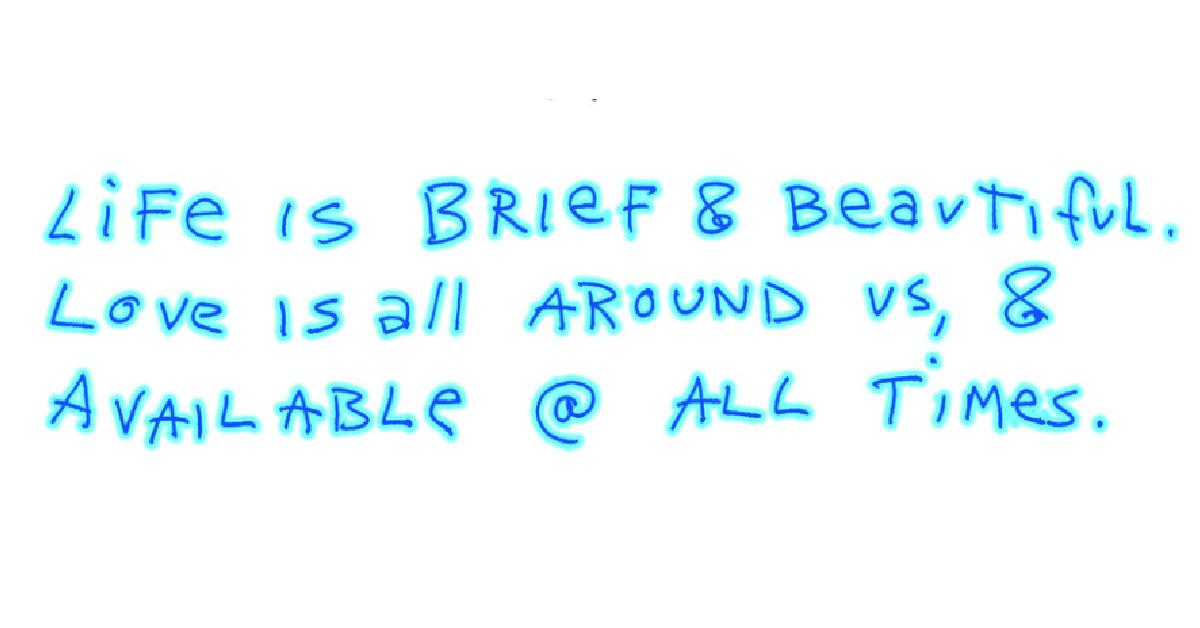 Life is BRIEF & Beautiful.
Love is all AROUND us, &
AVAILABLE @ ALL Times.